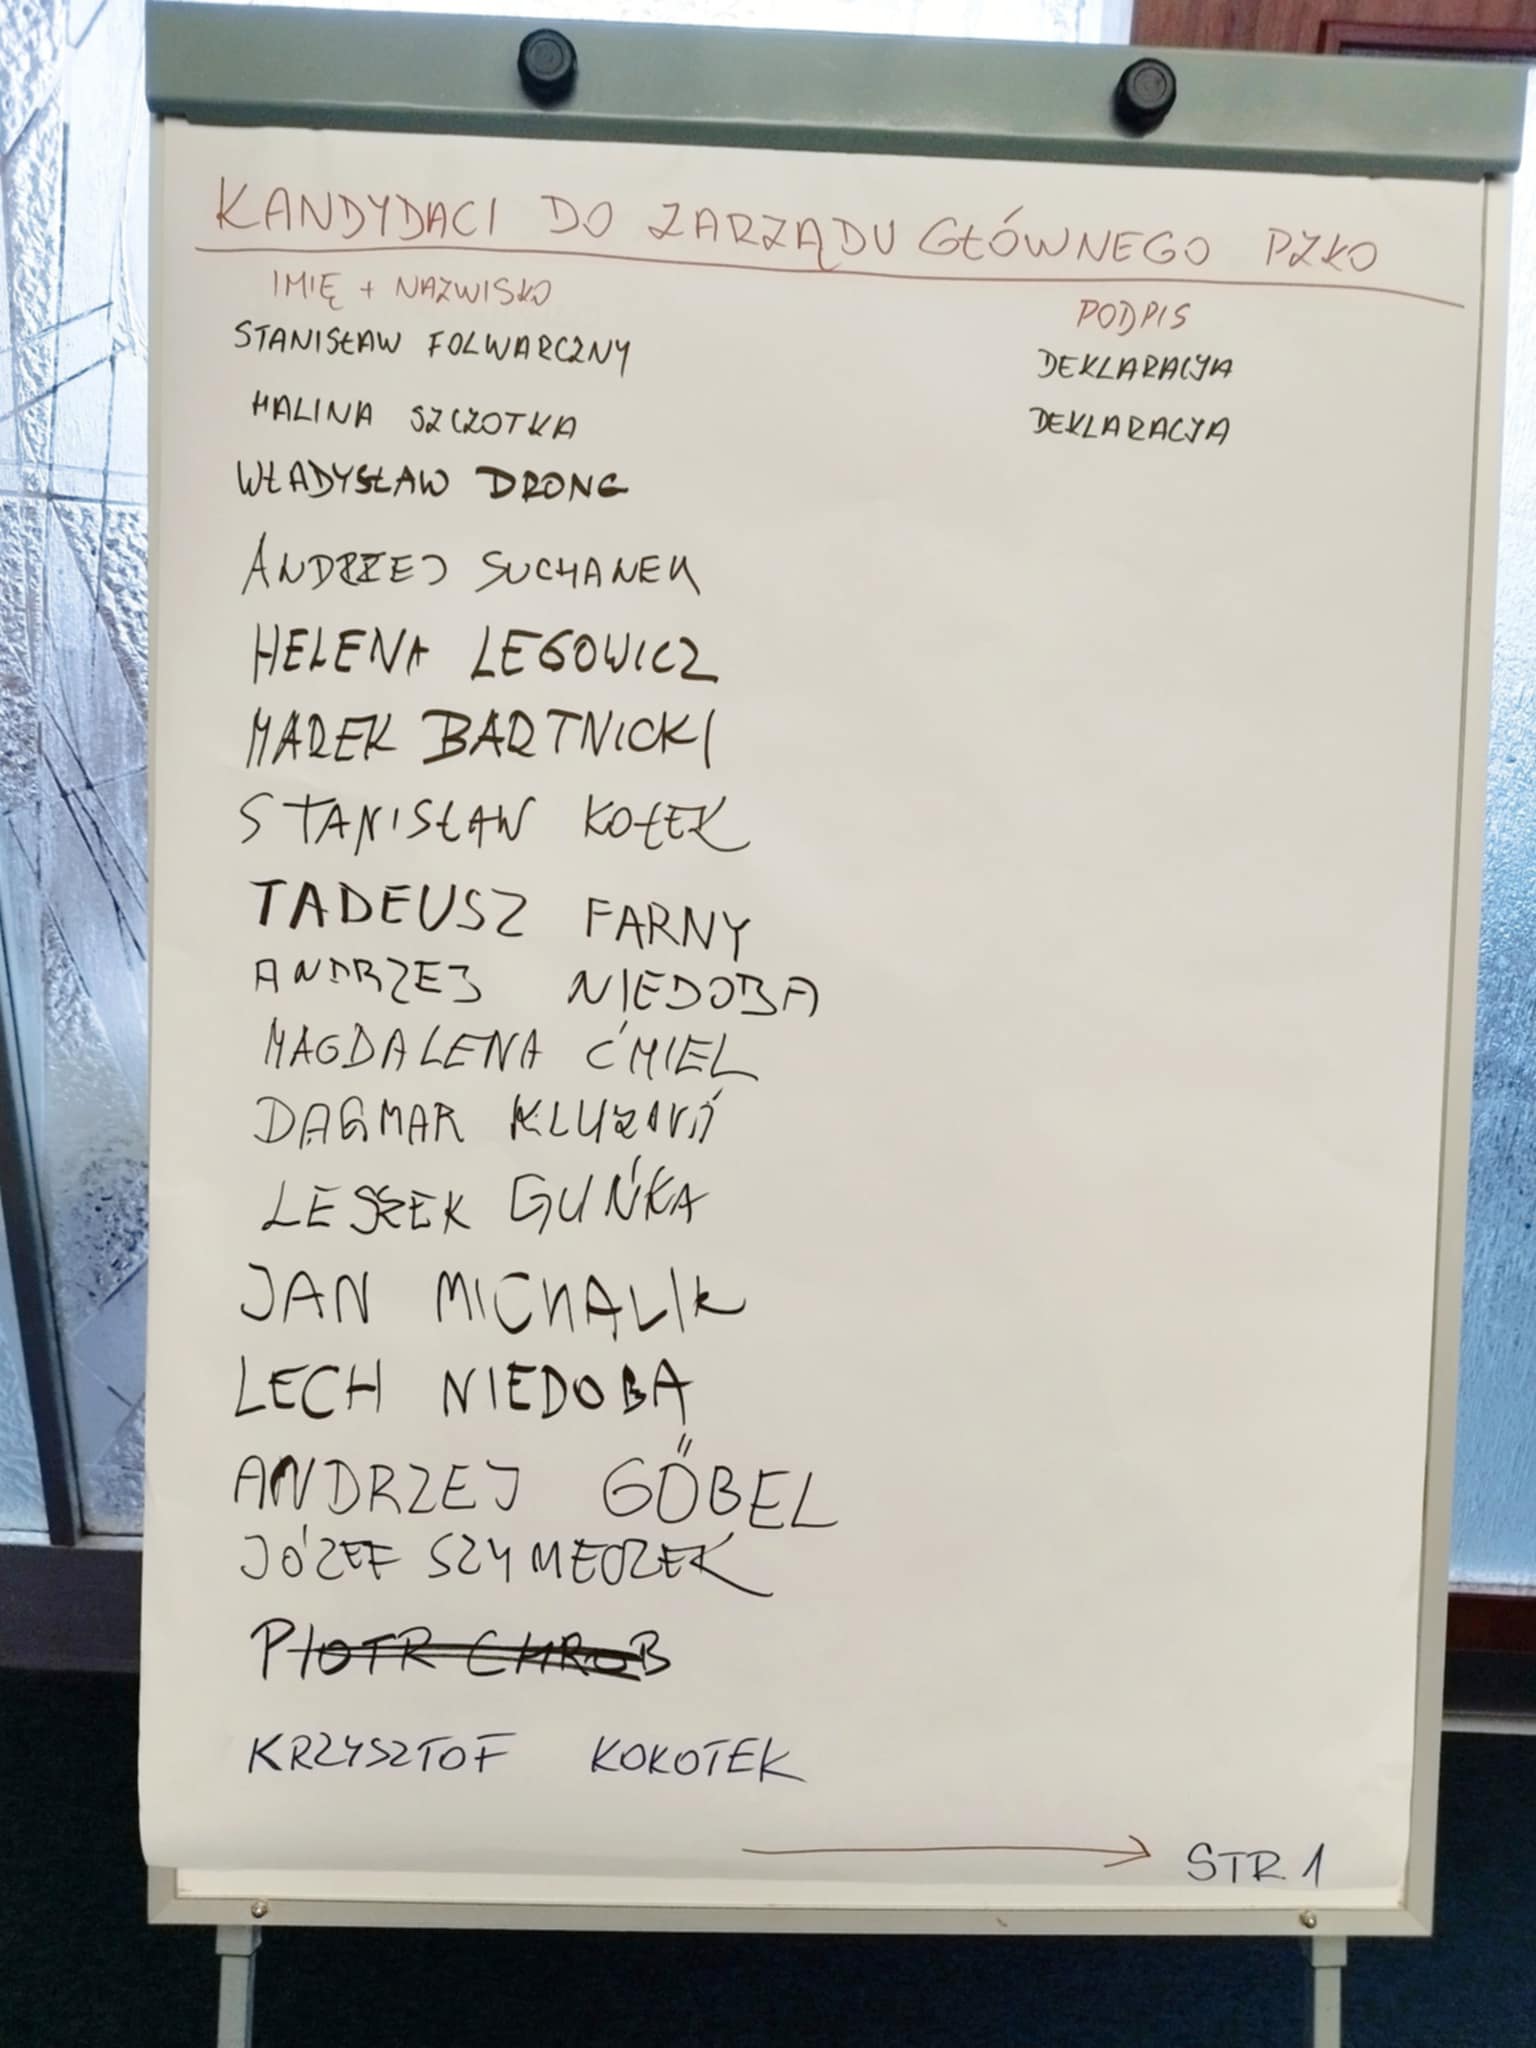 KANDYDACI DO ZARZĄDU GŁÓWNEGO PZKO
IMIĘ + NAZWISKO PODPIS
STANISŁAW FOLWARCZNY DEKLARACJA
HALINA SZCZOTKA DEKLARACJA
WŁADYSŁAW DRONG
ANDRZEJ SUCHANEK
HELENA LEGOWICZ
MAREK BARTNICKI
STANISŁAW KOŁEK
TADEUSZ FARNY
ANDRZEJ NIEDOBA
MAGDALENA ĆMIEL
DAGMAR
LESZEK GUŃKA
JAN MICHALIK
LECH NIEDOBA
ANDRZEJ GŐBEL
JÓZEF SZYMECZEK
PIOTR CHROB
KRZYSZTOF KOKOTEK
STR 1